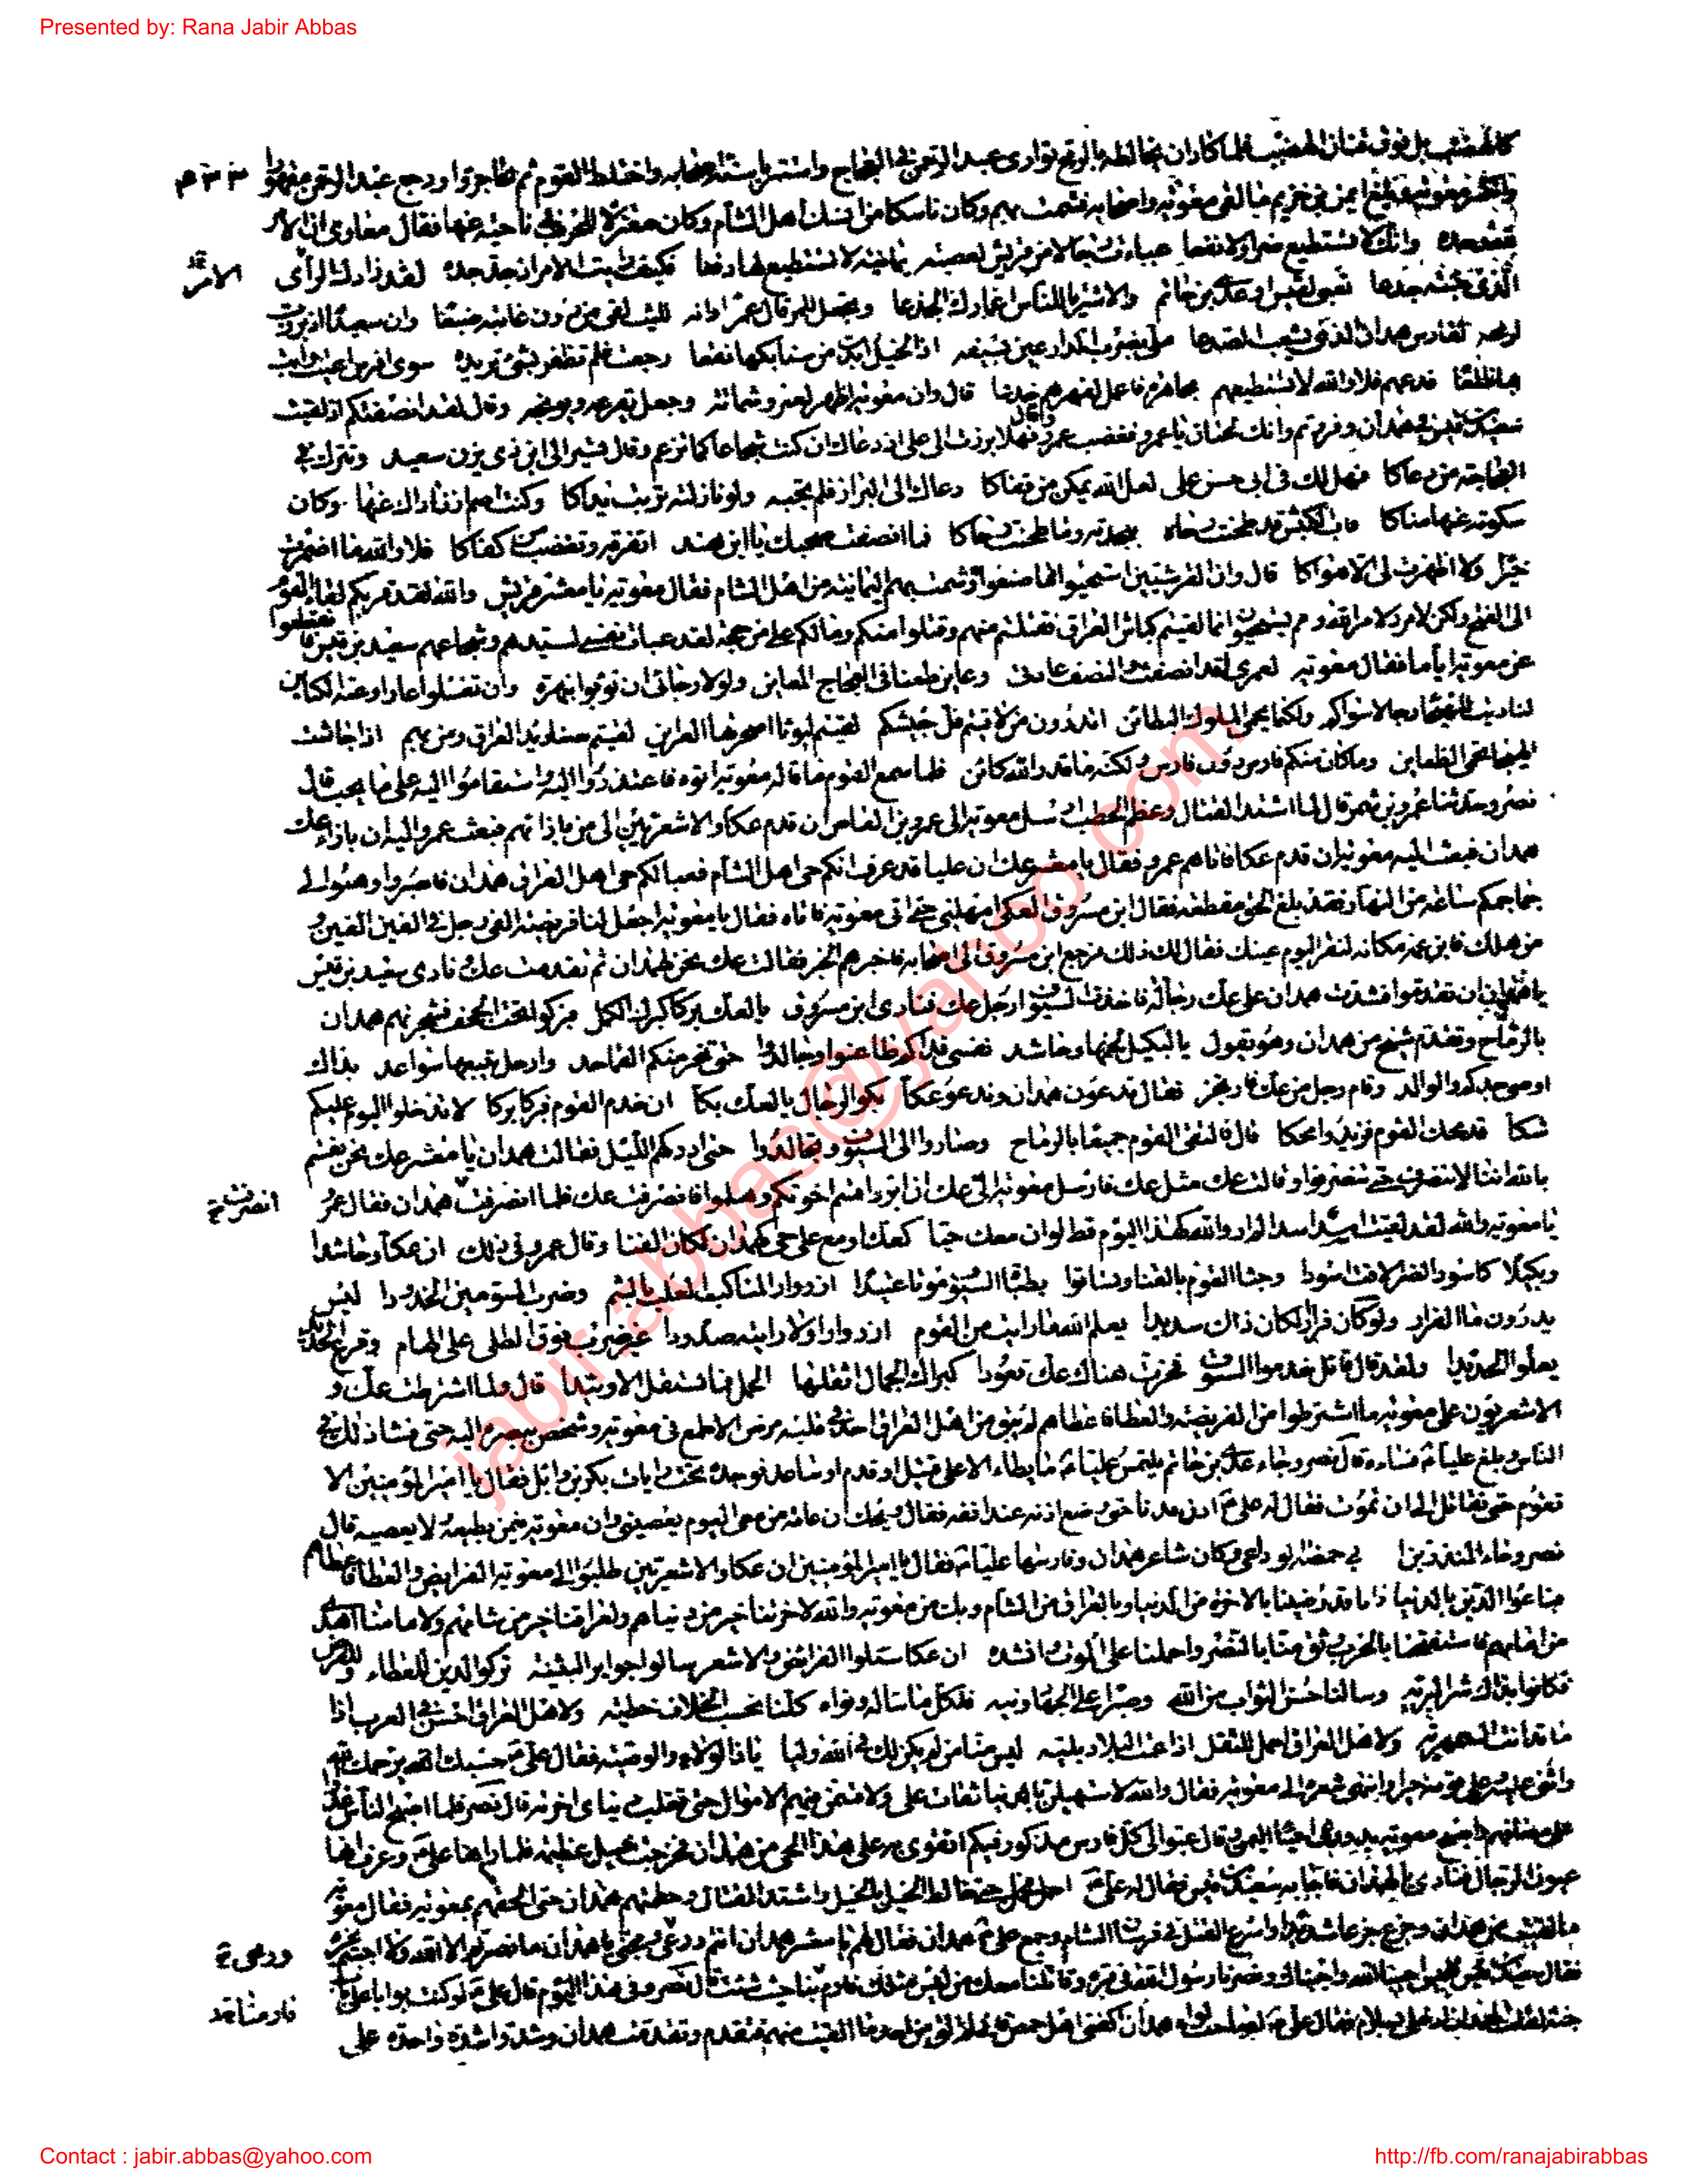 Presented by: Rana Jabir Abbas
فلما كاد ان يخالطه بالرمح توارى عبد الرحمن في العجاج واستتر واختلط القوم ثم تحاجزوا ورجع عبد الرحمن
وكان ناسكا من انسك اهل الشام وكان معتزلا للحرب في ناحية عنها فقال معاوى ان الامر
وانك لا تستطيع ضرا ولا نفعا عباءت رجالا من قريش لعصبة يمانية لا تستطيع لها دفعا فكيف رايت الامر اذ جد جده لقد زادك الراى
الامر
الذي جئته جدعا تعبى لقيس او عدى بن حاتم والاشتر يا للناس اغمارك الجدعا وتجعل للمرقال عمرا وانه لليث لقى من دون غايته ضبعا وان سعيدا اذ برزت
لرمحه لفارس همدان الذي يشعب الصدعا اذا الخيل ابدت من سنابكها نقعا رجعت فلم تظفر بشئ تريده سوى فرس
فدعهم فلا والله لا تستطيعهم مجاهرة فاعمل لقهرهم خدعا قال وان معوية اظهر لعمرو شماتة وجعل يقرعه ويوبخه وقال لقد انصفتكم اذ لقيت
سعيد بن قيس في همدان وفررتم وانك لجبان يا عمرو فغضب عمرو وقال فهلا برزت الى على اذ دعاك ان كنت شجاعا كما تزعم وقال تشير الى ابن ذى يزن سعيد وتترك في
العجاجة من دعاكا فهل لك في ابى حسن على لعل الله يمكن من قفاكا دعاك الى البراز فلم تجبه ولو نازلته تربت يداكا وكنت اصم اذ ناداك عنها وكان
سكوته عنها مناكا فاب الكبش قد طحنت رحاه بنجدته وما طحنت رحاكا فما انصفت صحبك يا ابن هند اتفرقه وتغضب من كفاكا فلا والله ما اضمرت
خيرا ولا اظهرت لى الا هواكا قال وان القرشيين استحيوا مما صنعوا وشمتت بهم اليمانية من اهل الشام فقال معوية يا معشر قريش والله لقد قربكم لقاء القوم
الى الفتح ولكن لا مرد لامر الله ومم تستحيون انما لقيتم كباش العراق فقتلتم منهم وقتلوا منكم وما لكم على من حجة لقد عبات نفسى لسيدهم وشجاعهم سعيد بن قيس فانقطعوا
عن معوية اياما فقال معوية لعمرى لقد انصفت والنصف عادتى وعاين طعنا في العجاج المعاين ولولا رجائى ان تؤبوا بنهزة وان تغسلوا عارا وعته الكناين
لناديت للهيجا رجالا سواكم ولكنما يحمى الملوك البطائن اتدرون من لاقيتم فل جيشكم لقيتم ليوثا اصحرتها العراين لقيتم صناديد العراق ومن بهم اذا جاشت
الهيجاء تحمى الظعاين وما كان منكم فارس دون فارس ولكنه ما قدر الله كائن فلما سمع القوم ما قال معوية اتوه فاعتذروا اليه واستقاموا اليه على ما يحب قال
نصر وحدثنا عمرو بن شمر قال لما اشتد القتال وعظم الخطب ارسل معوية الى عمرو بن العاص ان قدم عكا والاشعريين الى من بازائهم فبعث عمرو اليه ان بازاء عك
همدان فبعث اليه معوية ان قدم عكا فاتاهم عمرو فقال يا معشر عك ان عليا قد عرف انكم حى اهل الشام فعبا لكم حى اهل العراق همدان فاصبروا وهبوا لى
جماجمكم ساعة من النهار فقد بلغ الحق مقطعه فقال ابن مسروق العكى امهلنى حتى اتى معوية فاتاه فقال يا معوية اجعل لنا فريضة الفى رجل في الفين الفين
ومن هلك فابن عمه مكانه لنقر اليوم عينك فقال لك ذلك فرجع ابن مسروق الى اصحابه فاخبرهم الخبر فقالت عك نحن لهمدان ثم تقدمت عك ونادى سعيد بن قيس
يا همدان ان تقدموا فشدت همدان على عك رجالة فاخذت السيوف ارجل عك فنادى ابن مسروق يالعك بركا كبرك الكمل فبركوا تحت الحجف فشجرتهم همدان
بالرماح وتقدم شيخ من همدان وهو يقول يا لبكيل لخمها وحاشد نفسى فداكم طاعنوا وجالدوا حتى تخر منكم القماحد وارجل يتبعها سواعد بذاك
اوصى جدكم والوالد وقام رجل من عك فارتجز فقال تدعون همدان وندعو عكا بكوا الرجال يا لعك بكا ان خدم القوم فبركا بركا لا تدخلوا اليوم عليكم
شكا قد محك القوم فزيدوا محكا قال فالتقى القوم جميعا بالرماح وصاروا الى السيوف وتجالدوا حتى ادركهم الليل فقالت همدان يا معشر عك نحن نقسم
بالله اننا لا ننصرف حتى تنصرفوا وقالت عك مثل ذلك فارسل معوية الى عك ان ابروا قسم اخوتكم وهلموا فانصرفت عك فلما انصرفت همدان فقال عمرو
انصرفت
يا معوية والله لقد لقيت اسد اسدا لم ار والله كهذا اليوم قط لو ان معك حيا كعك او مع على حى كهمدان لكان الفنا وقال عمرو في ذلك ان عكا وحاشدا
وبكيلا كاسود الضراء لاقت اسودا وجثا القوم بالقنا وتساقوا بظبات السيوف موتا عتيدا ازورار المناكب الغلب بالشم وضرب المسومين الخدودا ليس
يدرون ما الفرار ولو كان فرار لكان ذاك سديدا يعلم الله ما رايت من القوم ازورارا ولا رايت صدودا غير ضرب فوق الطلى على الهام وقرع الحديد
يعلو الحديدا ولقد قال قائل خدموا السوق فخرت هناك عك قعودا كبراك الجمال اثقلها الحمل فما تستقل الا وئيدا قال ولما اشترطت عك و
الاشعريون على معوية ما اشترطوا من الفريضة والعطا فاعطاهم لم يبق من اهل العراق احد في قلبه مرض الا طمع في معوية وشخص ببصره اليه حتى فشا ذلك في
الناس وبلغ عليا فساءه قال نصر وجاء عدى بن حاتم يلتمس عليا ما يطاء الا على قتيل او قدم او ساعد فوجده تحت رايات بكر بن وائل فقال يا امير المؤمنين الا
تقوم حتى نقاتل الى ان نموت فقال له على ادن فدنا حتى وضع اذنه عند انفه فقال ويحك ان عامة من معى اليوم يعصينى وان معوية فيمن يطيعه ولا يعصيه قال
نصر وجاء المنذر بن ابي حميضة الوداعى وكان شاعر همدان وفارسها عليا فقال يا امير المؤمنين ان عكا والاشعريين طلبوا الى معوية الفرايض والعطا فاعطاهم
فباعوا الدين بالدنيا وانا قد رضينا بالاخرة من الدنيا وبالعراق من الشام وبك من معوية والله لاخرتنا خير من دنياهم ولعراقنا خير من شامهم ولامامنا اهدى
من امامهم فاستفتحنا بالحرب وثق منا بالنصر واحملنا على الموت وانشد ان عكا سئلوا الفرائض والاشعر سالوا جوايز البثنية تركوا الدين للعطاء وللفرض
فكانوا بذاك شر البرية وسالنا حسن الثواب من الله وصبرا على الجهاد ونية فلكل ما ساله ونواه كلنا نحسب الخلاف خطية ولاهل العراق احسن في الحرب اذا
ما تدانت السمهرية ولاهل العراق احمل للثقل اذا عمت البلاد بلية ليس منا من لم يكن لك في الله وليا يا ذا الولاء والوصية فقال على حسبك الله يرحمك الله
واثنى عليه وعلى قومه خيرا وانتهى شعره الى معوية فقال والله لاستميلن بالدنيا ثقات على ولاقسمن فيهم الاموال حتى تغلب دنياى اخرته قال نصر فلما اصبح الناس غدوا
على مصافهم واصبح معوية يدور في احياء اليمن وقال عبوا الى كل فارس مذكور فيكم اتقوى به على هذا الحى من همدان فخرجت خيل عظيمة فلما راها على وعرف انها
عيون الرجال فنادى يا لهمدان فاجابه سعيد بن قيس فقال له على احمل فحمل حتى خالط الخيل بالخيل واشتد القتال وحطمتهم همدان حتى الحقتهم بمعوية فقال معوية
ما لقيت من همدان وجزع جزعا شديدا واسرع القتل في فرسان الشام وجمع على همدان فقال لهم يا معشر همدان انتم درعى ورمحى يا همدان ما نصرتم الا الله ولا اجبتم غيره
ورمحى
فقال سعيد بن قيس اجبنا الله واجبناك ونصرنا رسول الله في قبره وقاتلنا معك من ليس مثلك فارم بنا حيث شئت قال نصر وفي هذا اليوم قال على ولو كنت بوابا على باب
فارم بنا
جنة لقلت لهمدان ادخلى بسلام فقال على لصاحب لواء همدان اكفنى اهل حمص فانى لم الق من احد ما لقيت منهم فتقدم وتقدمت همدان وشدوا شدة واحدة على
jabir.abbas@yahoo.com
Contact : jabir.abbas@yahoo.com
http://fb.com/ranajabirabbas